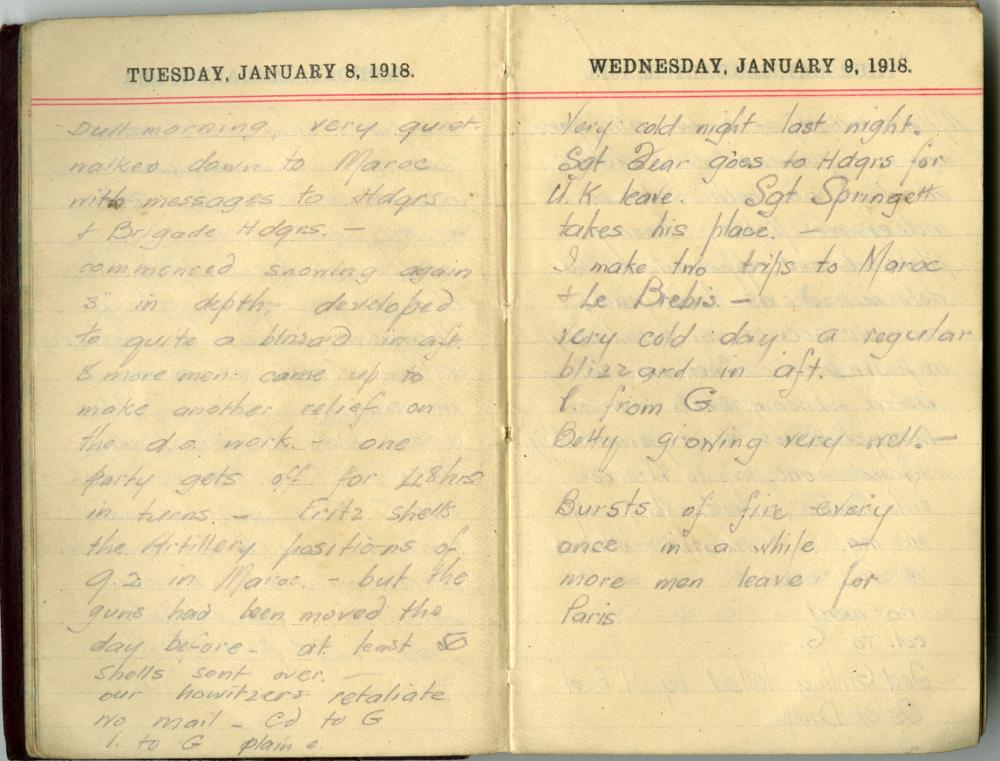 TUESDAY, JANUARY 8, 1918.
Dull morning, very quiet.
walked down to Maroc
with messages to Hdqrs
+ Brigade Hdqrs. —
commenced snowing again
3" in depth, developed
to quite a blizzard in aft.
8 more men came up to
make another relief on
the d.o. work. — one
party gets off for 48 hrs
in turns. — Fritz shells
the Artillery positions of
9.2 in Maroc. - but the
guns had been moved the
day before - at least 50
shells sent over. —
our howitzers retaliate
No mail - Cd to G
l. to G plain e.
WEDNESDAY, JANUARY 9, 1918.
Very cold night last night.
Sgt Dear goes to Hdqrs for
U.K leave. Sgt Springett
takes his place. —
I make two trips to Maroc
+ Le Brebis. —
very cold day a regular
blizzard in aft.
l. from G.
Betty growing very well. —
Bursts of fire every
once in a while —
more men leave for
Paris